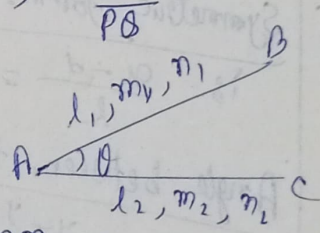 PQ
B
l₁, m₁, n₁
A θ
l₂, m₂, n₂ C